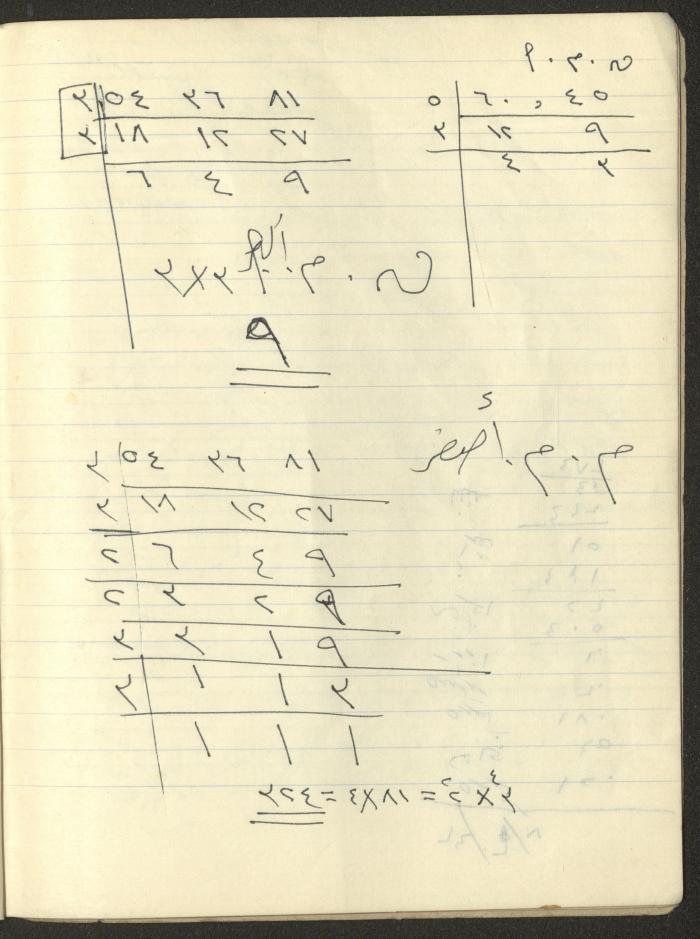 ق.م.أ
٥ | ٦٠ ، ٤٥
٣ | ١٢ ٩
٤ ٣
٣ | ٥٤ ٣٦ ٨١
٣ | ١٨ ١٢ ٢٧
٦ ٤ ٩
ق.م.أكبر ٣×٣
٩
م.م.أصغر
٣ | ٥٤ ٣٦ ٨١
٣ | ١٨ ١٢ ٢٧
٢ | ٦ ٤ ٩
٢ | ٣ ٢ ٩
٣ | ٣ ١ ٩
٣ | ١ ١ ٣
١ ١ ١
٣^٤ × ٢^٢ = ٨١×٤ = ٣٢٤